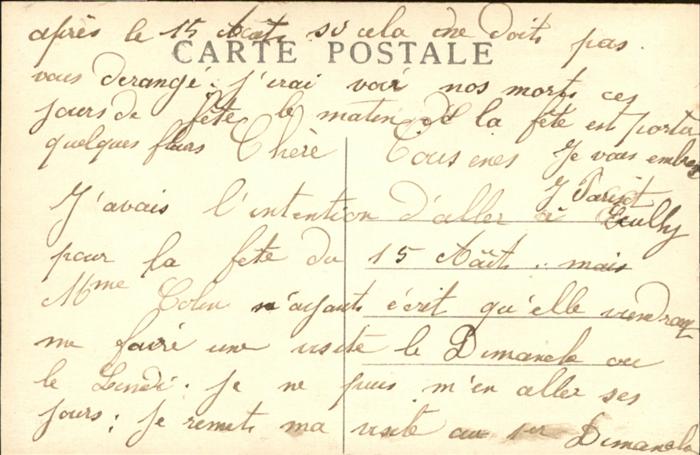 après le 15 Août si cela ne doit pas
CARTE POSTALE
vous derangé. j'irai voir nos morts ces
jours de fête le matin de la fête est porta
quelques fleurs Chère Cousenes Je vous embra
J Parisot
J'avais l'intention d'aller à Ecully
pour la fête du 15 Août. mais
Mme Colin m'ayant écrit qu'elle viendrai
me faire une visite le Dimanche ou
le Lundi. Je ne puis m'en aller ses
jours; je remets ma visite au 1er Dimanche